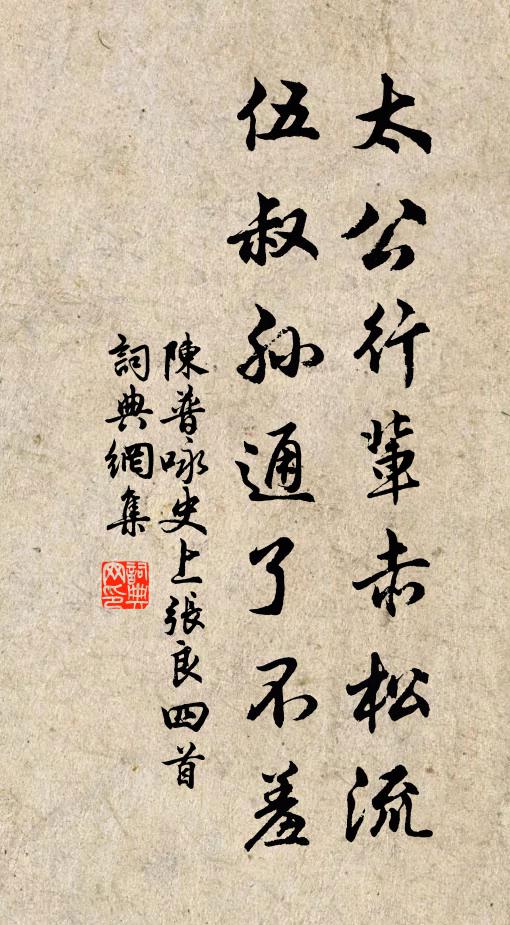 太公行輩赤松流
伍叔孫通了不羞
陳普咏史上張良四首
詞典網集
詞典网印